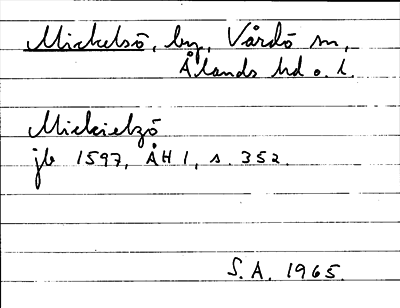 Mickelsö, by, Vårdö sn,
Ålands hd o. l.
Mickielzö
jb 1597, ÅH 1, s. 352.
S. A. 1965.